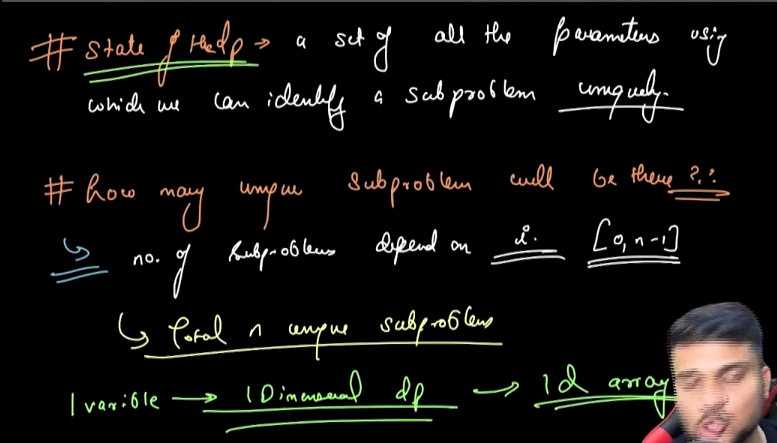 # State of the dp → a set of all the parameters using
which we can identify a subproblem uniquely.
# how many unique subproblem will be there ??
↳ no. of subproblems depend on i. [0, n-1]
↳ Total n unique subproblems
1 varible → 1 Dimensional dp → 1d array